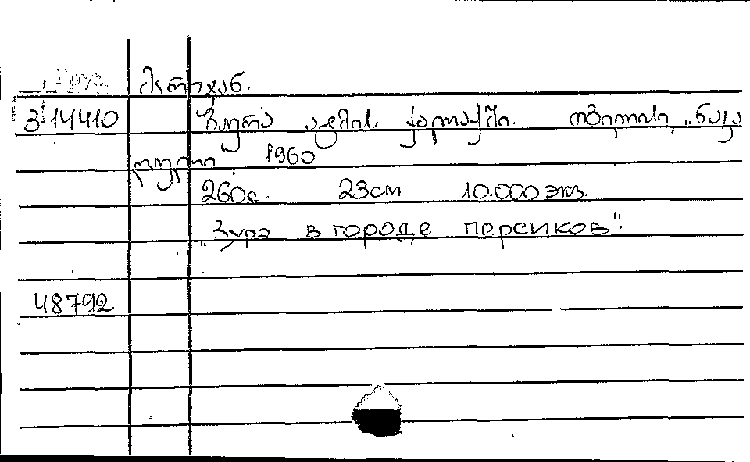 მარიჯან.
3 14410 ზურა ატმის ქალაქში. თბილისი, „ნაკა
დული 1960
260с. 23см 10.000 экз.
„Зура в городе персиков".
48792